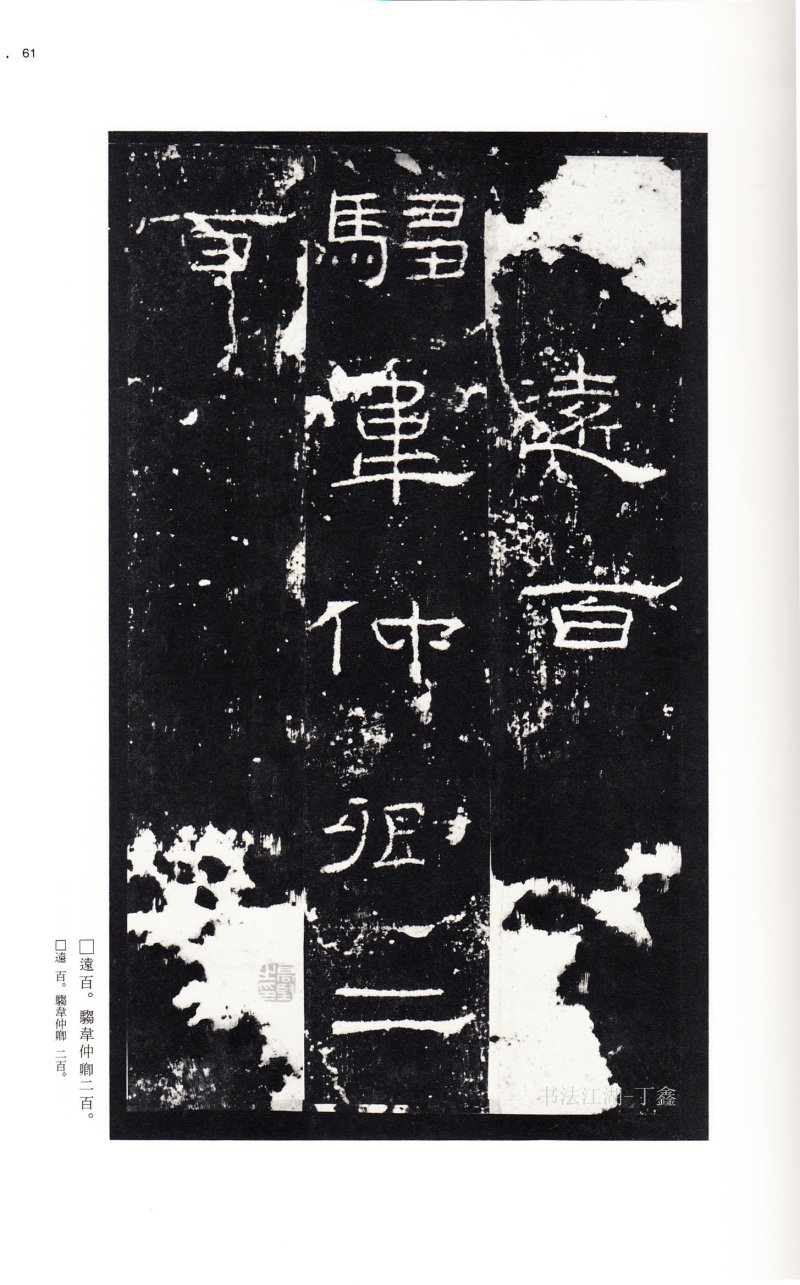 61
遠百
騶韋仲卿二
百
□遠百。騶韋仲卿二百。
□遠 百。騶韋仲卿 二百。
书法江湖-丁鑫